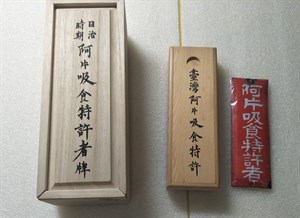 日治
時期
阿片吸食特許者牌
臺灣阿片吸食特許
阿片吸食特許者